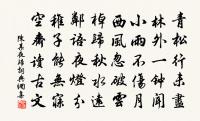 青松行未盡
林外一鐘聞
小雨不傷月
西風忽破雲
歸秋水遠
鄰語夜燈分
稚子能無寐
空齋讀古文
陳基夜歸詞典網集